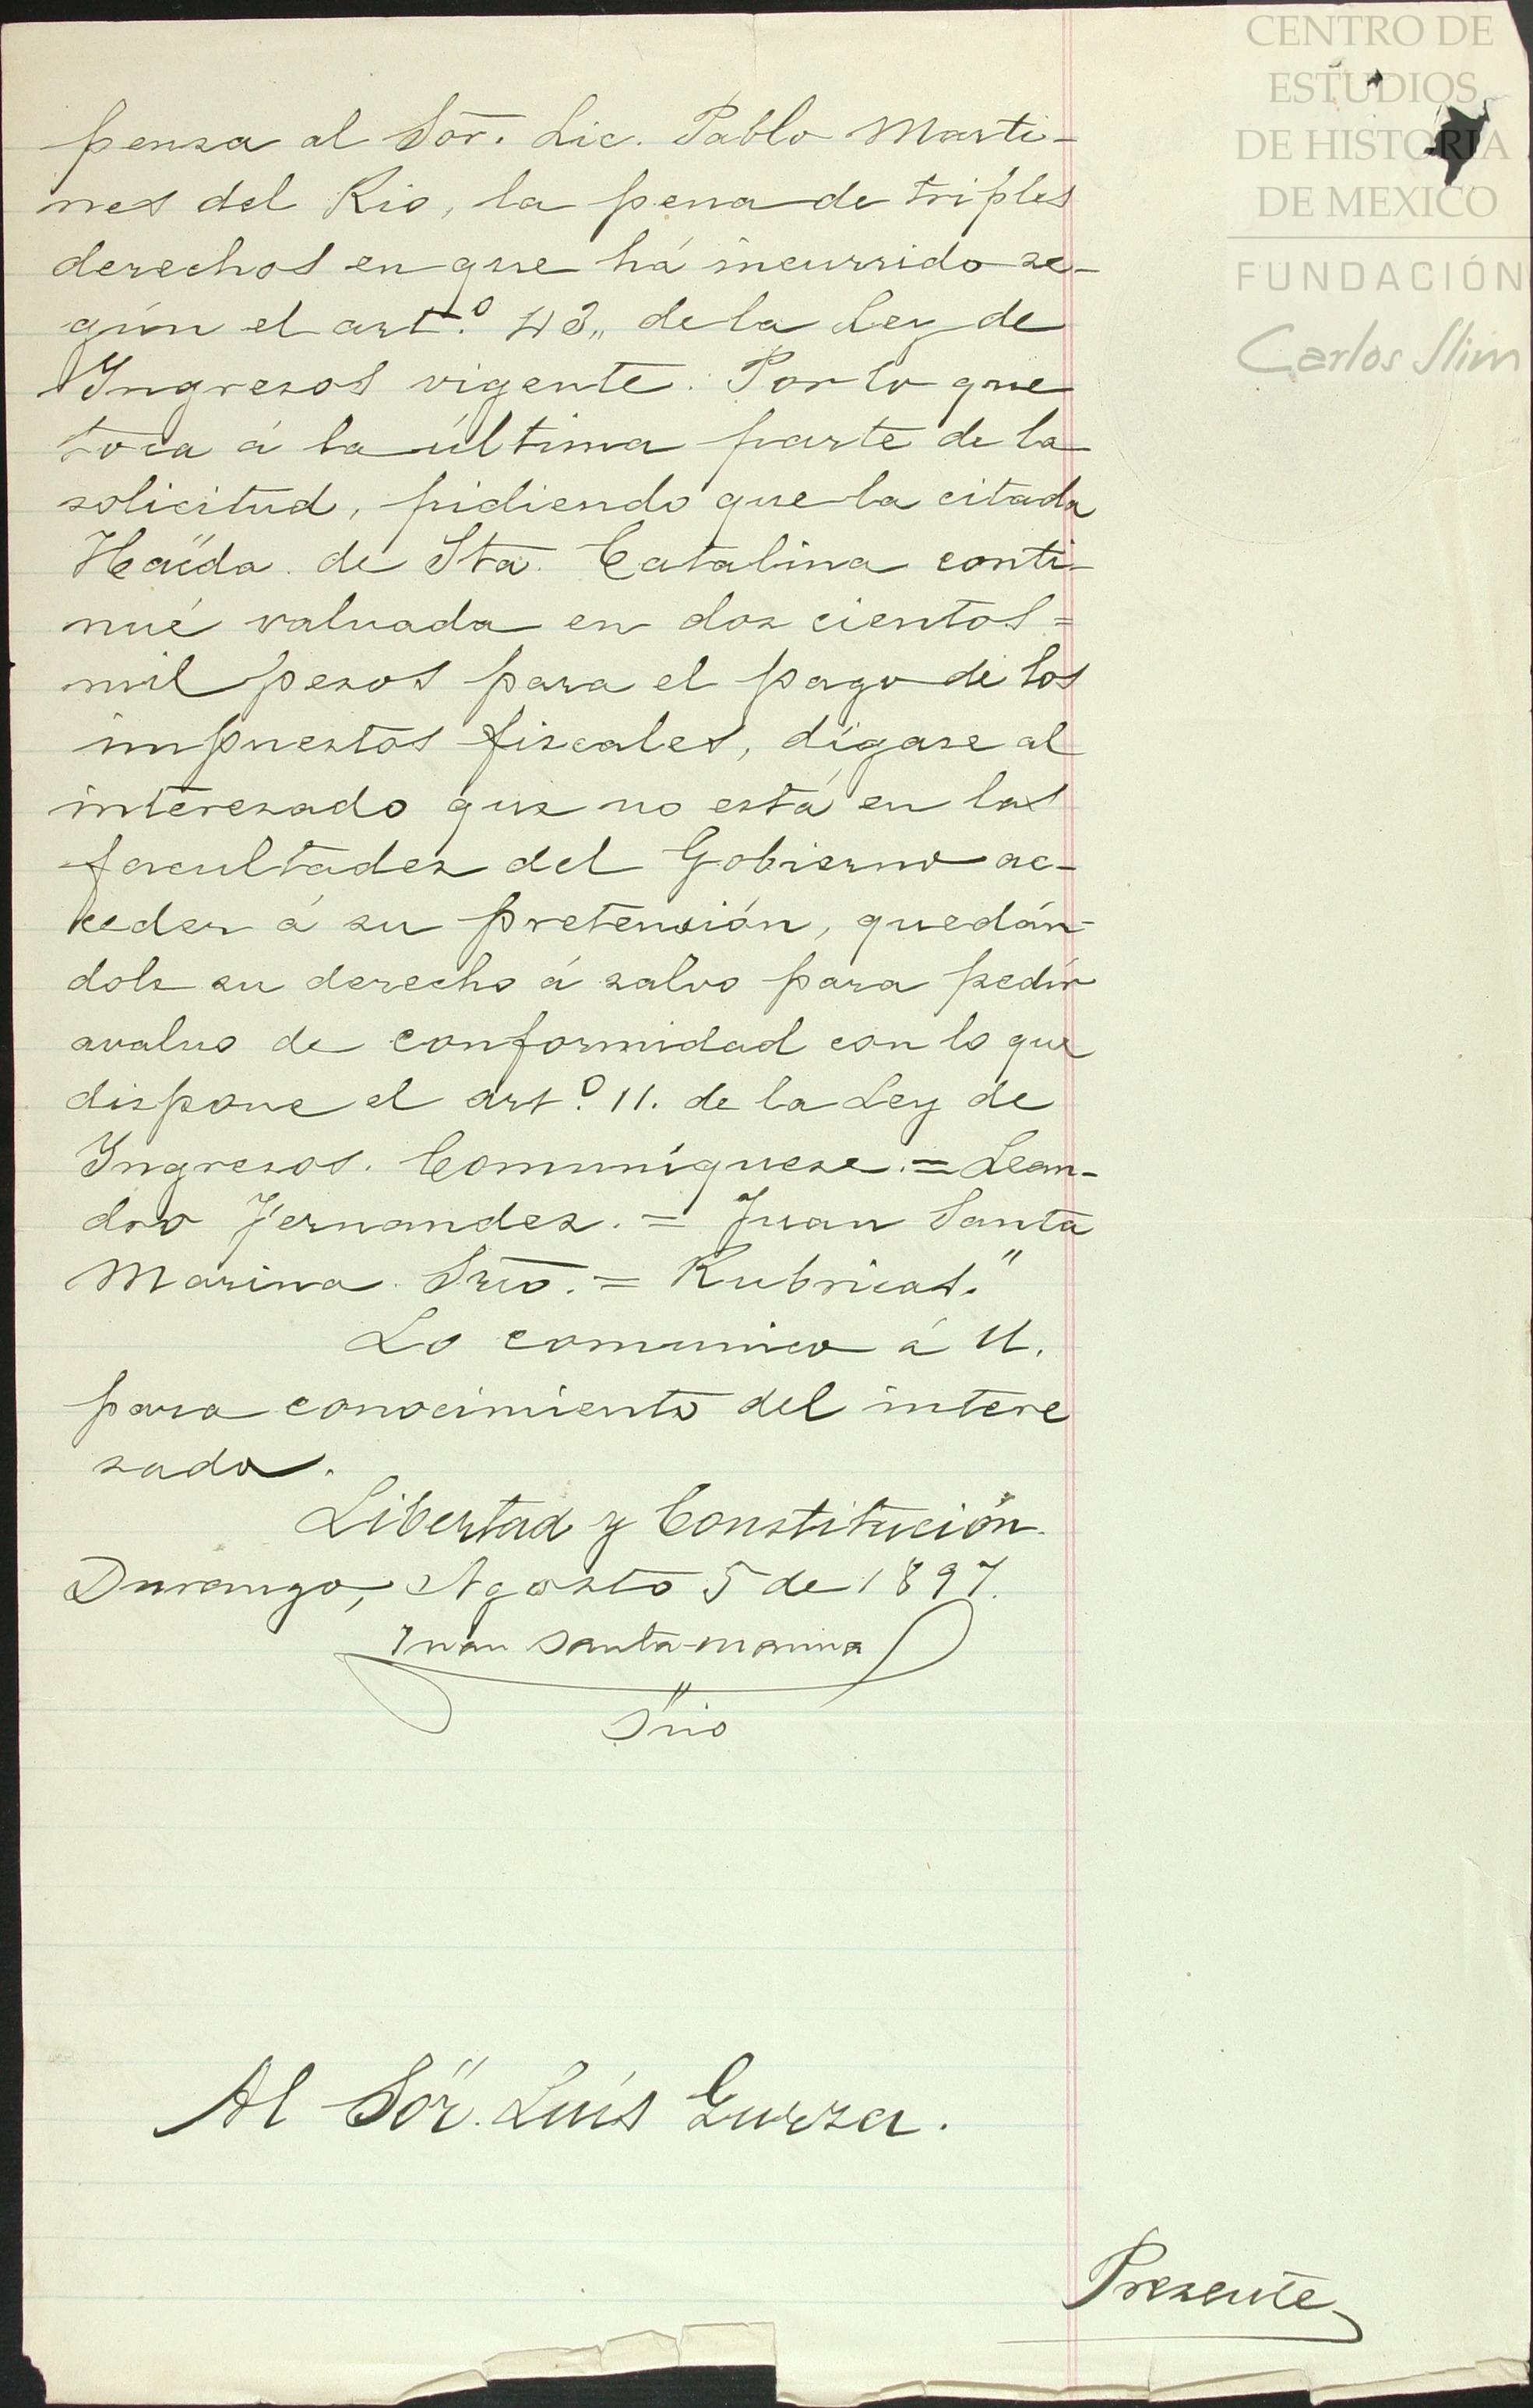 CENTRO DE
ESTUDIOS
DE HISTORIA
DE MEXICO
FUNDACIÓN
Carlos Slim
pensa al Sor. Lic. Pablo Marti-
nes del Rio, la pena de triples
derechos en que há incurrido se-
gún el art.º 43,, de la Ley de
Ingresos vigente. Por lo que
toca á la última parte de la
solicitud, pidiendo que la citada
Hacída. de Sta. Catalina conti-
nué valuada en dos cientos =
mil pesos para el pago de los
impuestos fiscales, dígase al
interesado que no está en las
facultades del Gobierno ac-
ceder á su pretensión, quedán-
dole su derecho á salvo para pedir
avaluo de conformidad con lo que
dispone el art.º 11. de la Ley de
Ingresos. Comuníquese. = Lean-
dro Fernandez. = Juan Santa
Marina. Srio. = Rubricas."
Lo comunico á U.
para conocimiento del intere
sado.
Libertad y Constitución.
Durango, Agosto 5 de 1897.
Juan Santa-marina
Srio
Al Sor. Luís Gurza.
Presente